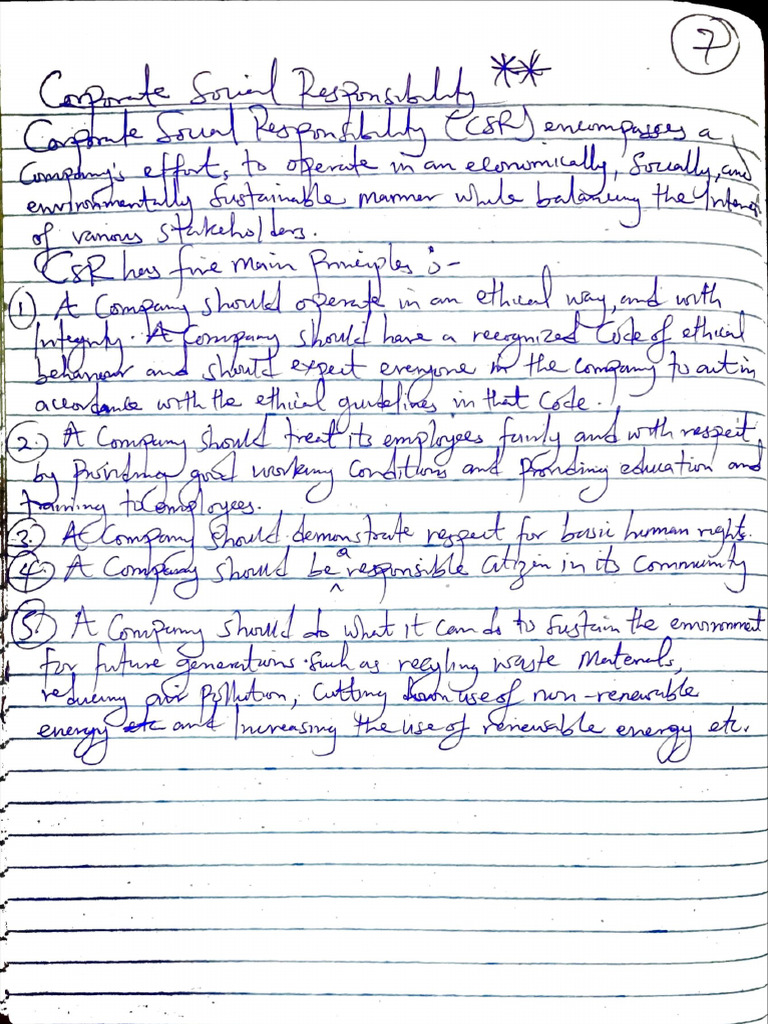 7
Corporate Social Responsibility **
Corporate Social Responsibility (CSR) encompasses a
Company's efforts to operate in an economically, Socially, and
environmentally Sustainable manner while balancing the Interest
of various Stakeholders.
CSR has five main Principles :-
① A Company should operate in an ethical way, and with
Integrity. A Company should have a recognized Code of ethical
behaviour and should expect everyone in the company to act in
accordance with the ethical guidelines in that Code.
2. A Company should treat its employees fairly and with respect,
by providing good working Conditions and providing education and
training to employees.
3. A Company should demonstrate respect for basic human rights.
4. A Company should be a responsible Citizen in its Community
5. A Company should do what it can do to Sustain the environment
for future generations. Such as recycling waste Materials,
reducing air Pollution, Cutting down use of non-renewable
energy etc and Increasing the use of renewable energy etc.